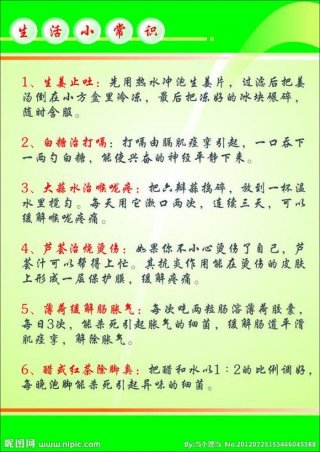 生活小常识
1、生姜止吐：先用热水冲泡生姜片，过滤后把姜
汤倒在小方盒里冷冻，最后把冻好的冰块碾碎，
随时含服。
2、白糖治打嗝：打嗝由膈肌痉挛引起，一口吞下
一两勺白糖，能使兴奋的神经平静下来。
3、大蒜水治喉咙疼：把六瓣蒜捣碎，放到一杯温
水里搅匀。每天用它漱口两次，连续三天，可以
缓解喉咙疼痛。
4、芦荟治烧烫伤：如果你不小心烫伤了自己，芦
荟汁可以帮得上忙。其抗炎作用能在烫伤的皮肤
上形成一层保护膜，缓解疼痛。
5、薄荷缓解肠胀气：每次吃两粒肠溶薄荷胶囊，
每日3次，能杀死引起胀气的细菌，缓解肠道平滑
肌痉挛，解除胀气。
6、醋或红茶除脚臭：把醋和水以1：2的比例调好，
每晚泡脚能杀死引起异味的细菌。
昵图网
www.nipic.com
By:当个理当 No:20120723153446045366